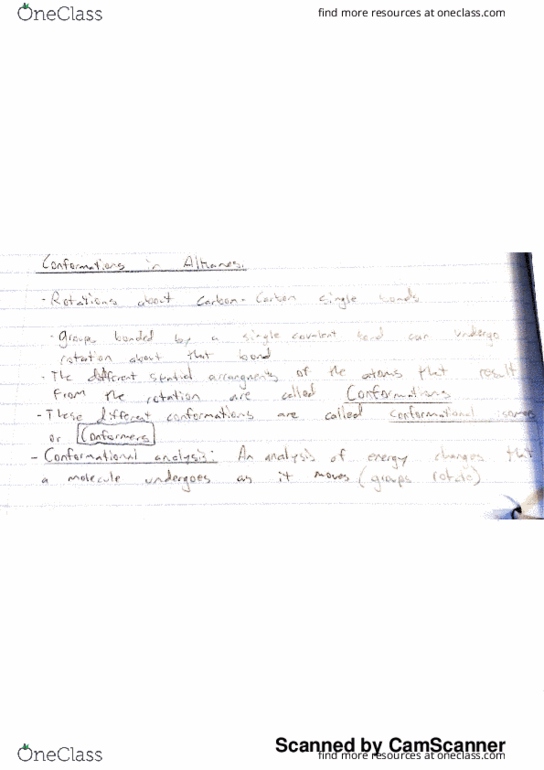 OneClass
find more resources at oneclass.com
Conformations in Alkanes.
- Rotations about Carbon-Carbon single bonds
- groups bonded by a single covalent bond can undergo
rotation about that bond
- The different spatial arrangments of the atoms that result
from the rotation are called Conformations
- These different conformations are called conformational isomers
or Conformers
- Conformational analysis: An analysis of energy changes that
a molecule undergoes as it moves (groups rotate)
Scanned by CamScanner
OneClass
find more resources at oneclass.com